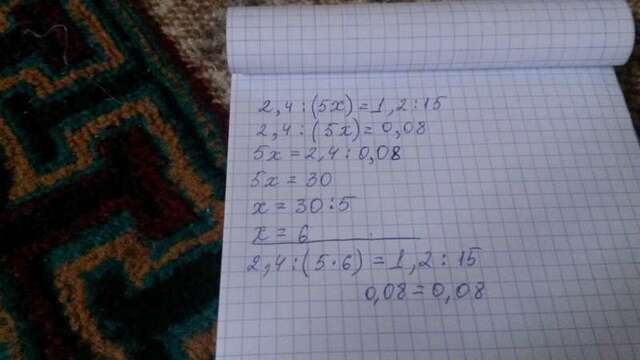 2,4:(5x)=1,2:15
2,4:(5x)=0,08
5x=2,4:0,08
5x=30
x=30:5
x=6
2,4:(5·6)=1,2:15
0,08=0,08